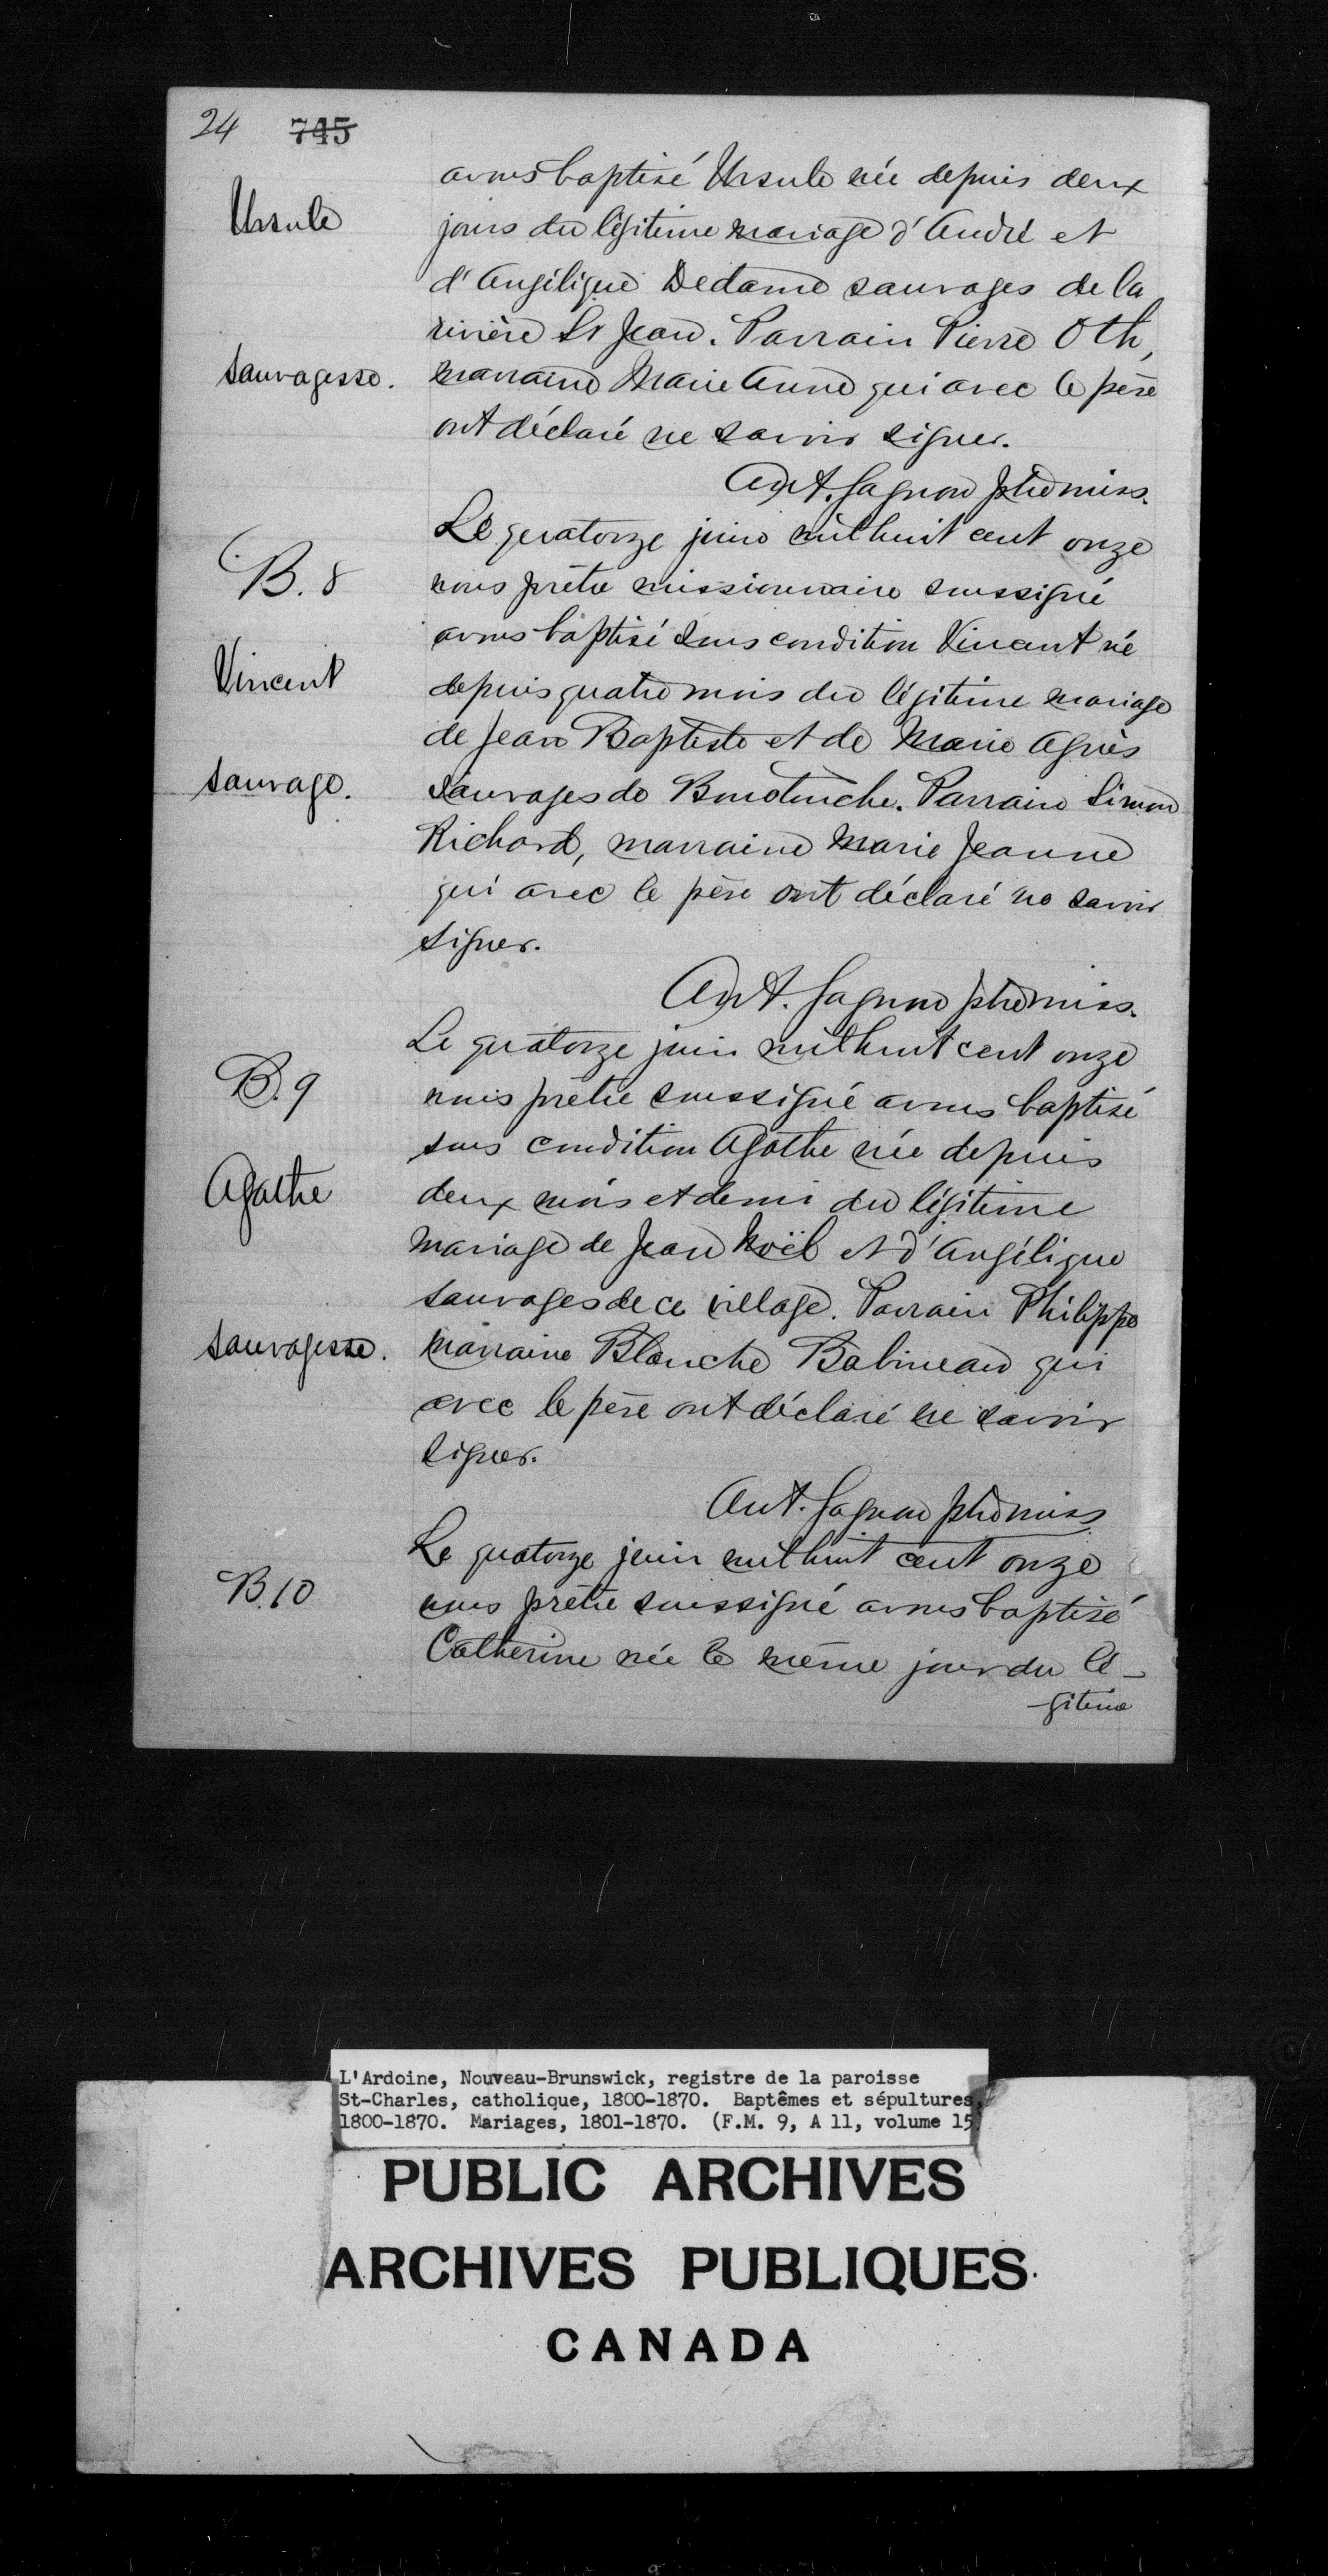 24 745
avons baptisé Ursule née depuis deux
Ursule
jours du légitime mariage d'André et
d'Angélique Dedame sauvages de la
rivière St Jean. Parrain Pierre Oth,
Sauvagesse.
marraine Marie Anne qui avec le père
ont déclaré ne savoir signer.
Ant. Gagnon ptre miss.
Le quatorze juin mil huit cent onze
B. 8
nous prêtre missionnaire soussigné
avons baptisé sous condition Vincent né
Vincent
depuis quatre mois du légitime mariage
de Jean Baptiste et de Marie Agnès
sauvage.
sauvages de Bouctouche. Parrain Simon
Richard, marraine Marie Jeanne
qui avec le père ont déclaré ne savoir
signer.
Ant. Gagnon ptre miss.
Le quatorze juin mil huit cent onze
B. 9
nous prêtre soussigné avons baptisé
sous condition Agathe née depuis
Agathe
deux mois et demi du légitime
mariage de Jean Noël et d'Angélique
sauvages de ce village. Parrain Philippe
sauvagesse.
marraine Blanche Babineau qui
avec le père ont déclaré ne savoir
signer.
Ant. Gagnon ptre miss
Le quatorze juin mil huit cent onze
B. 10
nous prêtre soussigné avons baptisé
Catherine née le même jour du lé-
-gitime
L'Ardoine, Nouveau-Brunswick, registre de la paroisse
St-Charles, catholique, 1800-1870. Baptêmes et sépultures,
1800-1870. Mariages, 1801-1870. (F.M. 9, A 11, volume 15
PUBLIC ARCHIVES
ARCHIVES PUBLIQUES
CANADA